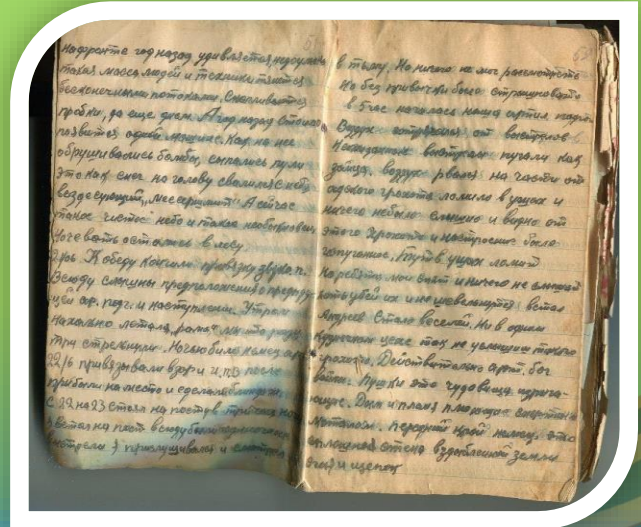 на фронте год назад удивляется
такая масса людей и техники тянется
бесконечными потоками. Скапливаются
пробки, да еще днем. А год назад стоило
появится одной машине. Как на нее
обрушивались бомбы, сыпались пули
это как снег на голову свалился с неба
вездесущий "мессершмит" А сейчас
такое чистое небо и такое
Ночевать остались в лесу
К обеду кончили привязку звукоп.
Всюду слышны предположения о предыду
щем ар. подг. и наступлении. Утром
нахально летала "рама"
три стрекнули. Ночью било немец. ар
22/6 привязывали взор и н.п.3 после
прибыли на место и сделали
С 22 на 23 стоял на посту в три часа
я встал на пост всюду были
выстрела я прислушивался и смотрел
в тылу. Но ничего не мог рассмотреть
Но без привычки было страшновато
в 5 час началась наша артил. подгот
Воздух сотрясался от выстрелов
выстрелы пугали как
зайца. воздух рвали на части от
адского грохота ломило в ушах и
ничего небыло слышно и видно от
этого грохота и настроение было
в ушах ломит
Но ребята мои спят и ничего не слышат
хоть убей их и не шевельнутся встал
Андреев стало веселей. Ни в одном
кузнечном цехе так не услышиш такого
грохота. Действительно арт. бог
войны. Пушки это чудовища изрыга-
ющие. Дым и пламя
металом. Передний край немец. это
сплошная стена вздыбленной земли
огня и щепок